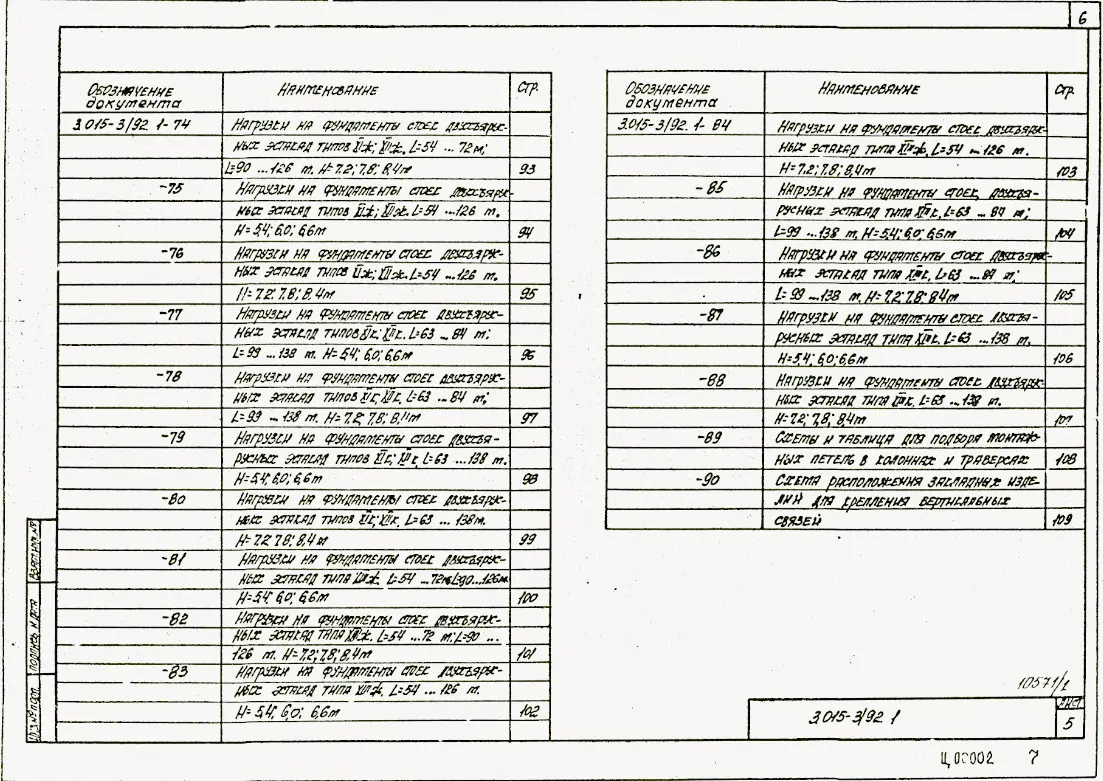 6
Обозначение документа Наименование Стр.
3.015-3/92.1-74 Нагрузки на фундаменты стоек двухъярус-
ных эстакад типов L=54 ... 72 м;
L=90 ... 126 м. H=7.2; 7,8; 8,4м 93
-75 Нагрузки на фундаменты стоек двухъярус-
ных эстакад типов L=54 ... 126 м.
H=5,4; 6,0; 6,6м 94
-76 Нагрузки на фундаменты стоек двухъярус-
ных эстакад типов L=54 ... 126 м.
H=7.2; 7,8; 8,4м 95
-77 Нагрузки на фундаменты стоек двухъярус-
ных эстакад типов L=63 ... 84 м;
L=99 ... 138 м. H=5,4; 6,0; 6,6м 96
-78 Нагрузки на фундаменты стоек двухъярус-
ных эстакад типов L=63 ... 84 м;
L=99 ... 138 м. H=7.2; 7,8; 97
-79 Нагрузки на фундаменты стоек двухъя-
русных эстакад типов L=63 ... 138 м.
H=5,4; 6,0; 6,6м 98
-80 Нагрузки на фундаменты стоек двухъярус-
ных эстакад типов L=63 ... 138м.
H=7.2; 7.8; 8,4м 99
-81 Нагрузки на фундаменты стоек двухъярус-
ных эстакад типа L=54 ... 72м; L=90...126м.
H=5,4; 6,0; 6,6м 100
-82 Нагрузки на фундаменты стоек двухъярус-
ных эстакад типа L=54 ... 72 м; L=90 ...
126 м. H=7,2; 7,8; 8,4м 101
-83 Нагрузки на фундаменты стоек двухъярус-
ных эстакад типа L=54 ... 126 м.
H=5,4; 6,0; 6,6м 102
Обозначение документа Наименование Стр.
3.015-3/92.1-84 Нагрузки на фундаменты стоек двухъярус-
ных эстакад типа L=54 ... 126 м.
H=7.2; 7.8; 8,4м 103
-85 Нагрузки на фундаменты стоек двухъя-
русных эстакад типа L=63 ... 84 м;
L=99 ... 138 м. H=5,4; 6,0; 6,6м 104
-86 Нагрузки на фундаменты стоек двухъярус-
ных эстакад типа L=63 ... 84 м;
L=99 ... 138 м. H=7,2; 7,8; 8,4м 105
-87 Нагрузки на фундаменты стоек двухъя-
русных эстакад типа L=63 ... 138 м.
H=5,4; 6,0; 6,6м 106
-88 Нагрузки на фундаменты стоек двухъярус-
ных эстакад типа L=63 ... 138 м.
H=7.2; 7,8; 8,4м 107
-89 Схемы и таблица для подбора монтаж-
ных петель в колоннах и траверсах 108
-90 Схема расположения закладных изде-
лий для крепления вертикальных
связей 109
Взам.инв.№
Подпись и дата
Инв.№подл.
10571/1
3.015-3/92 1
Лист
5
Ц00002 7